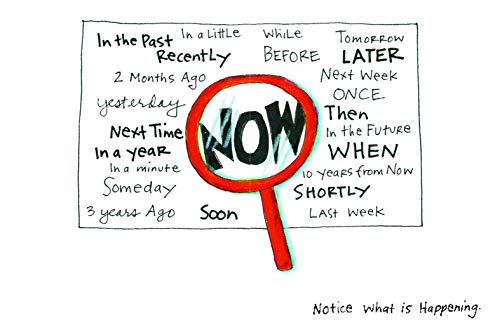 In the Past In a Little While Tomorrow
Recently BEFORE LATER
2 Months Ago Next Week
yesterday ONCE
Next Time NOW Then
In a year In the Future
In a minute WHEN
Someday 10 years from Now
3 years Ago Soon SHORTLY
Last Week
Notice What is Happening.